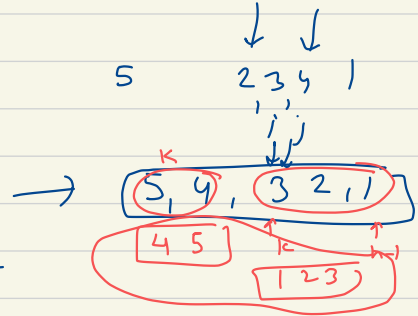 5 2 3 4 1
j j
k
5, 4, 3 2, 1
4 5 k n-1
1 2 3